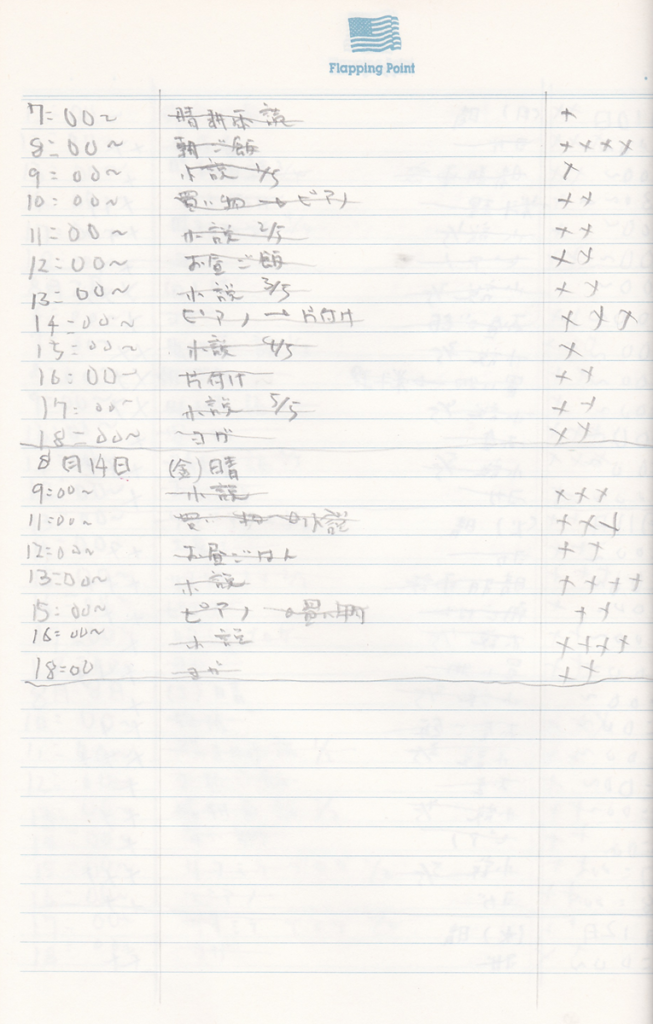 Flapping Point
7:00〜 晴耕雨読 ×
8:00〜 朝ご飯 ××××
9:00〜 小説 1/5 ×
10:00〜 買い物→ピアノ ××
11:00〜 小説 2/5 ××
12:00〜 お昼ご飯 ××
13:00〜 小説 3/5 ××
14:00〜 ピアノ→片付け ×××
15:00〜 小説 4/5 ×
16:00〜 片付け ××
17:00〜 小説 5/5 ××
18:00〜 ヨガ ××
8月14日 (金)晴
9:00〜 小説 ×××
11:00〜 買い物→小説 ×××
12:00〜 お昼ごはん ××
13:00〜 小説 ××××
15:00〜 ピアノ→ ××
16:00〜 小説 ××××
18:00 ヨガ ××